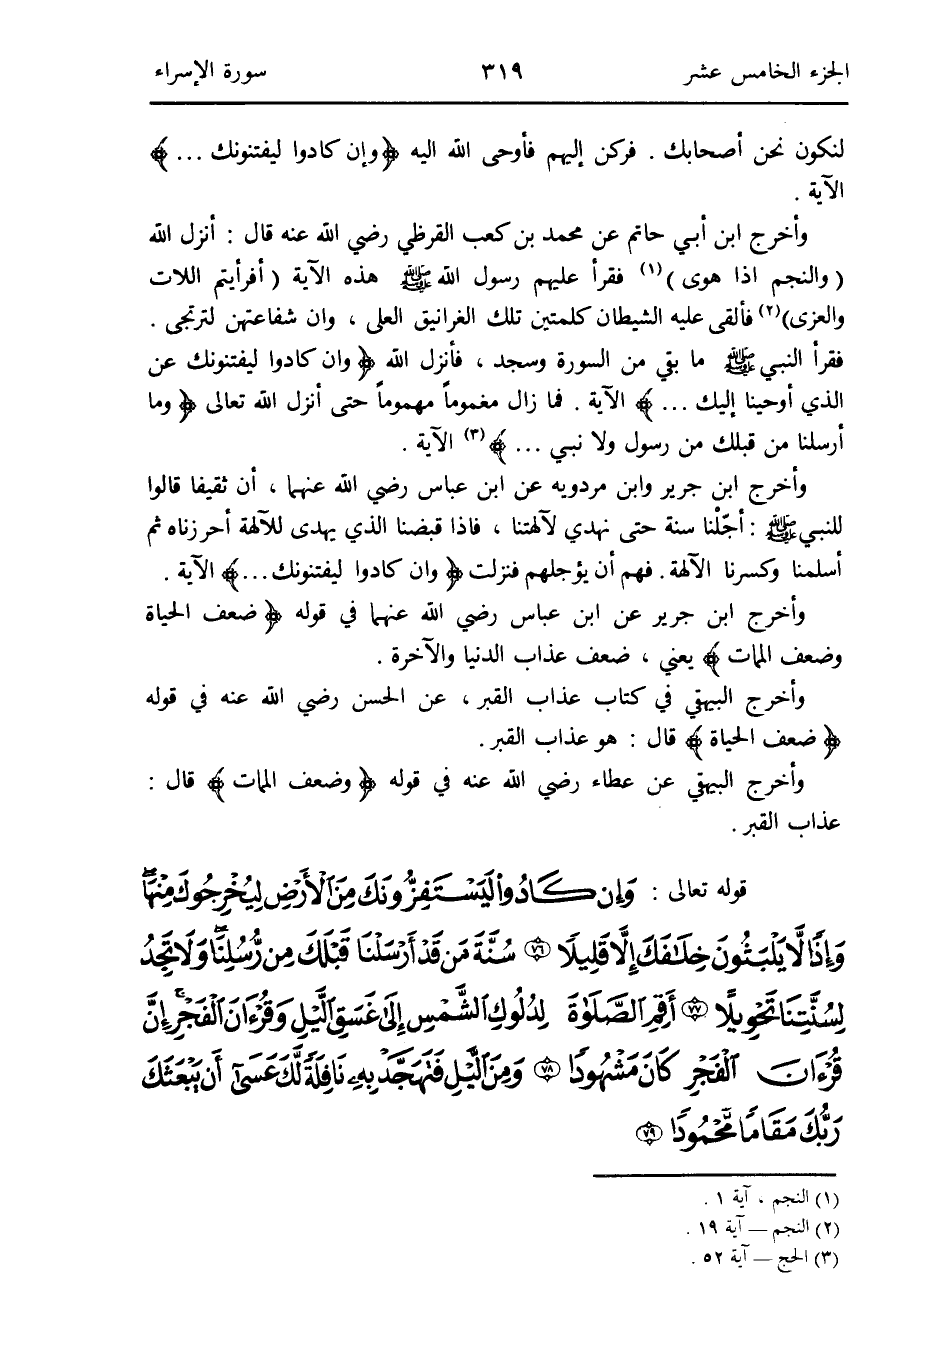 الجزء الخامس عشر ٣١٩ سورة الإسراء
لنكون نحن أصحابك . فركن إليهم فأوحى الله اليه ﴿وإن كادوا ليفتنونك ... ﴾
الآية .
وأخرج ابن أبي حاتم عن محمد بن كعب القرظي رضي الله عنه قال : أنزل الله
( والنجم اذا هوى )(١) فقرأ عليهم رسول الله ﷺ هذه الآية ( أفرأيتم اللات
والعزى)(٢) فألقى عليه الشيطان كلمتين تلك الغرانيق العلى ، وان شفاعتهن لترتجى .
فقرأ النبي ﷺ ما بقي من السورة وسجد ، فأنزل الله ﴿ وان كادوا ليفتنونك عن
الذي أوحينا إليك ... ﴾ الآية . فما زال مغموماً مهموماً حتى أنزل الله تعالى ﴿ وما
أرسلنا من قبلك من رسول ولا نبي ... ﴾(٣) الآية .
وأخرج ابن جرير وابن مردويه عن ابن عباس رضي الله عنهما ، أن ثقيفا قالوا
للنبي ﷺ : أجّلْنا سنة حتى نهدي لآلهتنا ، فاذا قبضنا الذي يهدى للآلهة أحرزناه ثم
أسلمنا وكسرنا الآلهة . فهم أن يؤجلهم فنزلت ﴿ وان كادوا ليفتنونك...﴾ الآية .
وأخرج ابن جرير عن ابن عباس رضي الله عنهما في قوله ﴿ ضعف الحياة
وضعف الممات ﴾ يعني ، ضعف عذاب الدنيا والآخرة .
وأخرج البيهقي في كتاب عذاب القبر ، عن الحسن رضي الله عنه في قوله
﴿ ضعف الحياة ﴾ قال : هو عذاب القبر .
وأخرج البيهقي عن عطاء رضي الله عنه في قوله ﴿ وضعف الممات ﴾ قال :
عذاب القبر .
قوله تعالى : وَإِن كَادُوا۟ لَيَسْتَفِزُّونَكَ مِنَ ٱلْأَرْضِ لِيُخْرِجُوكَ مِنْهَا ۖ
وَإِذًا لَّا يَلْبَثُونَ خِلَٰفَكَ إِلَّا قَلِيلًا ٧٦ سُنَّةَ مَن قَدْ أَرْسَلْنَا قَبْلَكَ مِن رُّسُلِنَا ۖ وَلَا تَجِدُ
لِسُنَّتِنَا تَحْوِيلًا ٧٧ أَقِمِ ٱلصَّلَوٰةَ لِدُلُوكِ ٱلشَّمْسِ إِلَىٰ غَسَقِ ٱلَّيْلِ وَقُرْءَانَ ٱلْفَجْرِ ۖ إِنَّ
قُرْءَانَ ٱلْفَجْرِ كَانَ مَشْهُودًا ٧٨ وَمِنَ ٱلَّيْلِ فَتَهَجَّدْ بِهِۦ نَافِلَةً لَّكَ عَسَىٰٓ أَن يَبْعَثَكَ
رَبُّكَ مَقَامًا مَّحْمُودًا ٧٩
(١) النجم ، آية ١ .
(٢) النجم — آية ١٩ .
(٣) الحج — آية ٥٢ .